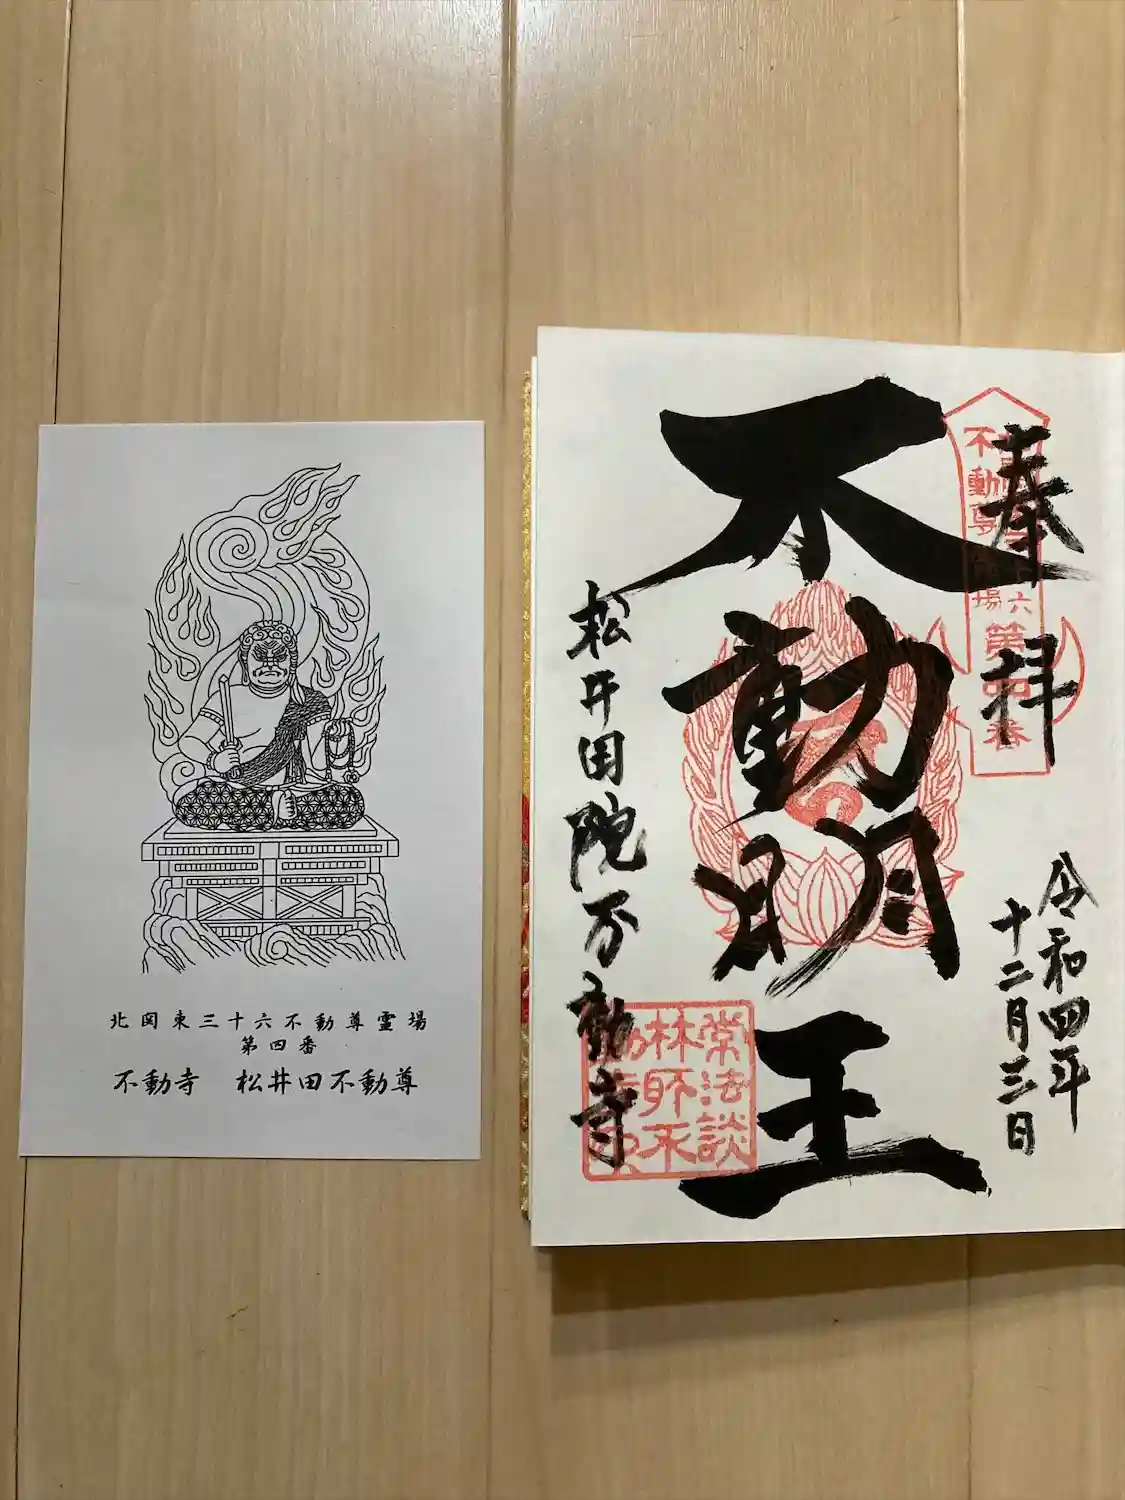 北関東三十六不動尊霊場
第四番
不動寺 松井田不動尊
奉拝
令和四年
十二月三日
不動明王
松井田院不動寺
不動尊
場
六
第四番
常法談
林師不
動寺